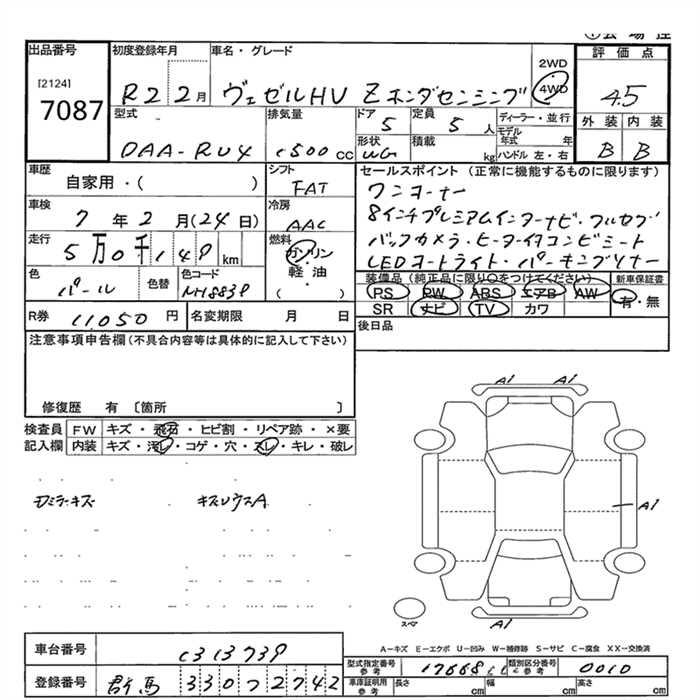 出品番号
[2124]
7087
初度登録年月
R2 2月
車名・グレード
ヴェゼルHV Zホンダセンシング
2WD
4WD
評価点
4.5
型式
DAA-RU4
排気量
1500 CC
ドア
5
定員
5 人
形状
WG
積載
kg
ディーラー・並行
モデル年式 年
ハンドル 左・右
外装 内装
B B
車歴
自家用・( )
シフト
FAT
車検
7年2月(24日)
冷房
AAC
走行
5万0千149km
燃料
ガソリン
軽油
( )
色
パール
色替
色コード
NH883P
R券
11,050円
名変期限 月 日
セールスポイント(正常に機能するものに限ります)
ワンオーナー
8インチプレミアムインターナビ・フルセグ
バックカメラ・ヒーター付コンビシート
LEDヘッドライト・パーキングソナー
装備品(純正品に限り○をつけてください)
新車保証書
PS PW ABS エアB AW
有・無
SR ナビ TV カワ
後日品
注意事項申告欄(不具合内容等は具体的に記入して下さい)
修復歴 有〔箇所 〕
検査員記入欄
FW キズ・飛石・ヒビ割・リペア跡・×要
内装 キズ・汚レ・コゲ・穴・スレ・キレ・破レ
キズ
A1 A1
A1
A1
スペア
A-キズ E-エクボ U-凹み W-補修跡 S-サビ C-腐食 XX-交換済
車台番号
1313739
登録番号
群馬 330 2742
型式指定番号 参考
17668
類別区分番号 参考
0010
車庫証明用 参考
長さ cm
幅 cm
高さ cm